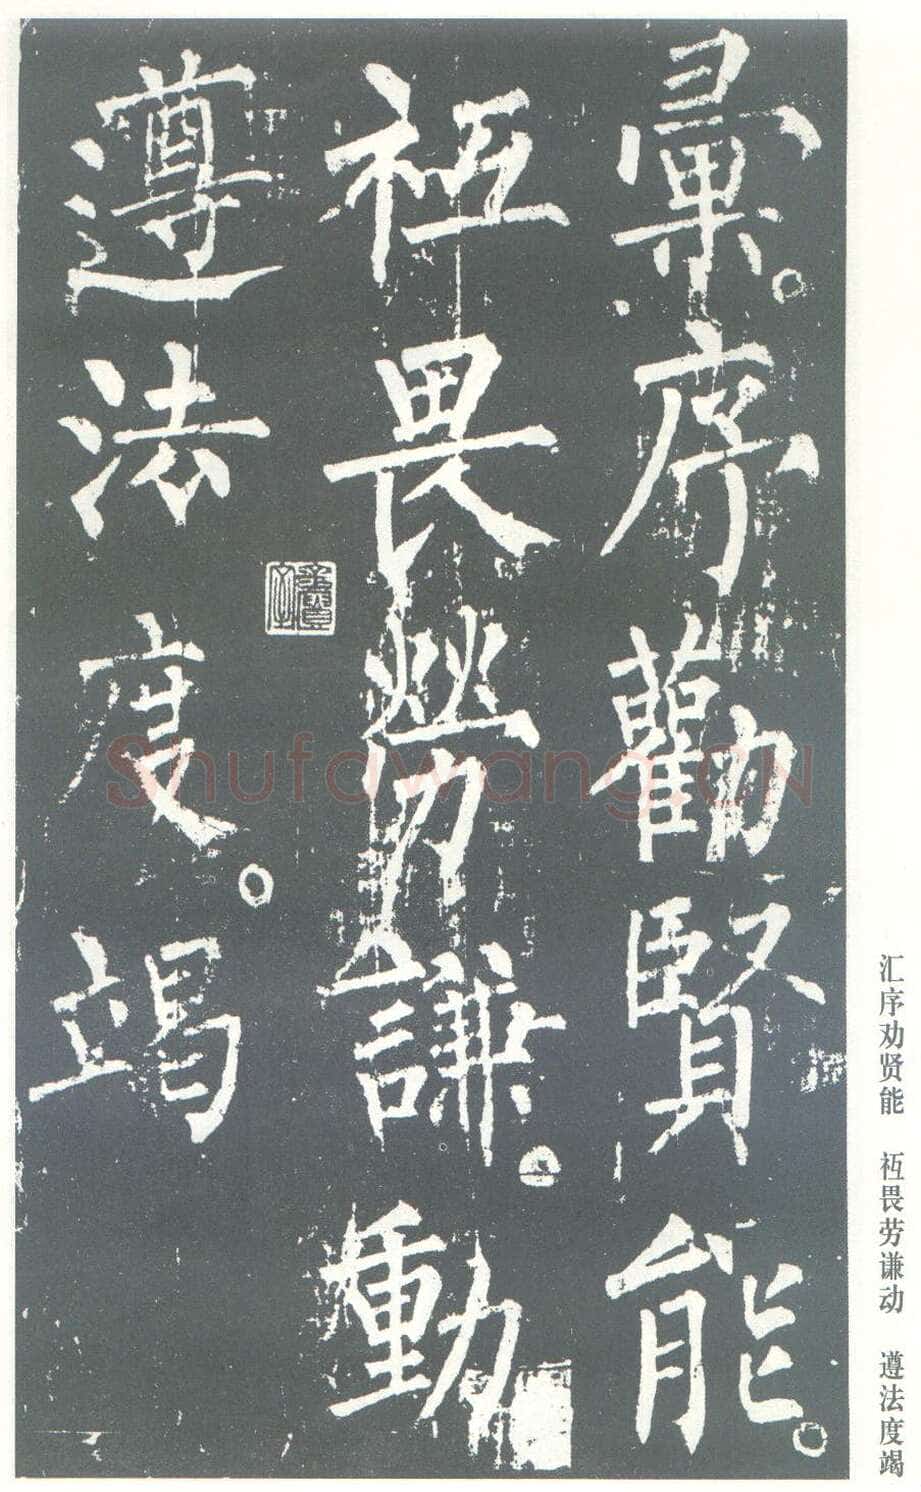 彚序勸賢能
祗畏勞謙動
遵法度竭
汇序劝贤能 祗畏劳谦动 遵法度竭
Shufawang.CN